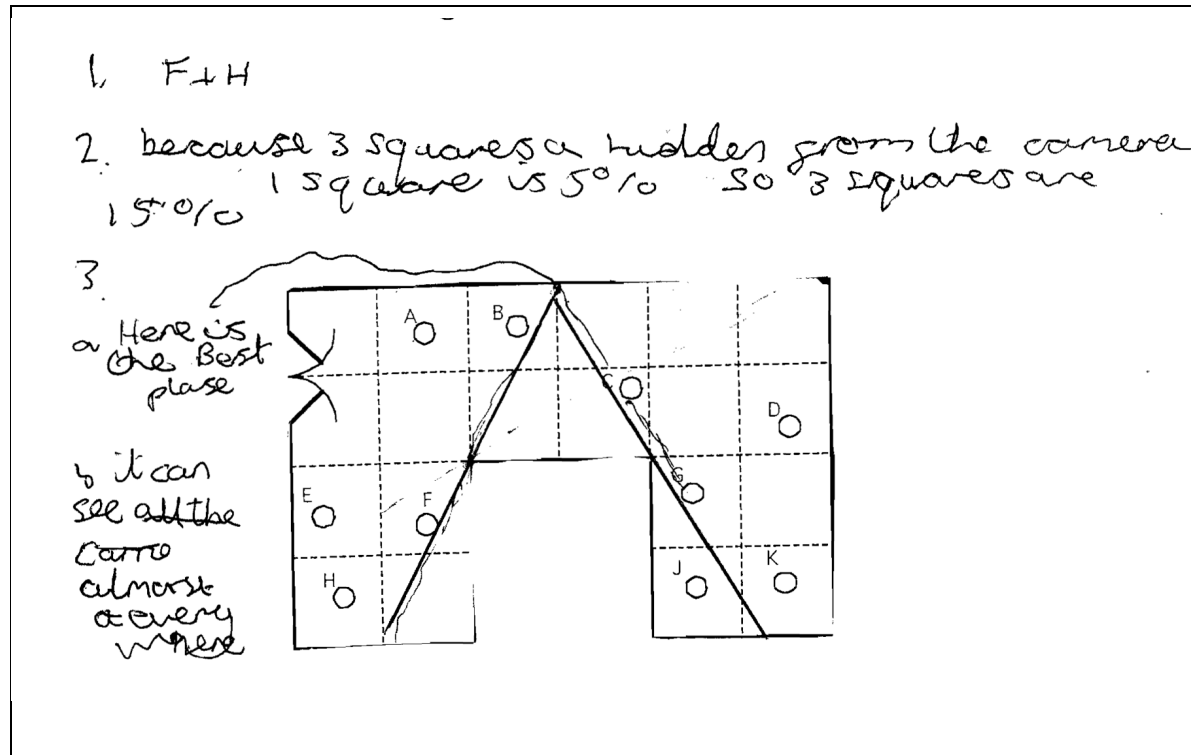 1. F + H
2. because 3 squares a hidden from the camera
1 square is 5% so 3 squares are
15%
3.
a Here is
the Best
plase
b it can
see all the
came
almorst
at every
where
A
B
C
D
E
F
G
H
J
K